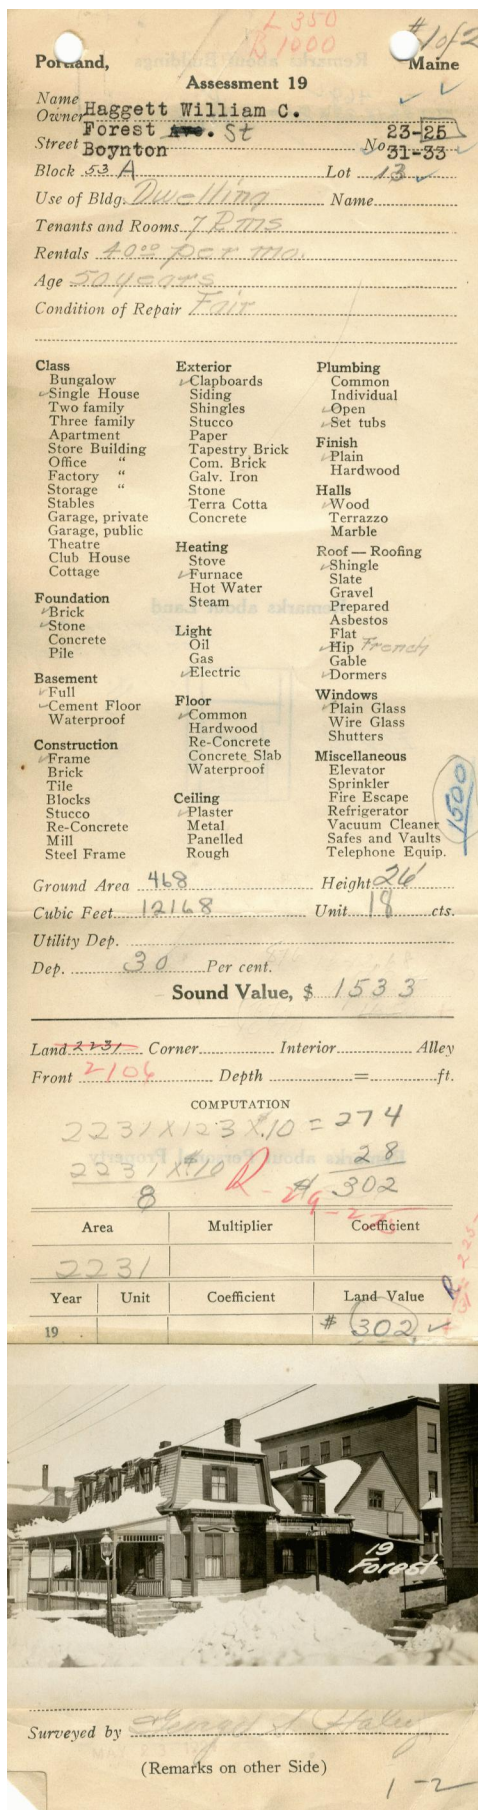 L 350
B 1000
#1 of 2
Portland, Maine
Assessment 19
Name
Owner Haggett William C.
Forest Ave. St 23-25
Street Boynton No. 31-33
Block 53 A Lot 13
Use of Bldg. Dwelling Name
Tenants and Rooms 7 Rms
Rentals 40.00 per mo.
Age 50 years
Condition of Repair Fair
Class
Bungalow
Single House
Two family
Three family
Apartment
Store Building
Office "
Factory "
Storage "
Stables
Garage, private
Garage, public
Theatre
Club House
Cottage
Foundation
Brick
Stone
Concrete
Pile
Basement
Full
Cement Floor
Waterproof
Construction
Frame
Brick
Tile
Blocks
Stucco
Re-Concrete
Mill
Steel Frame
Exterior
Clapboards
Siding
Shingles
Stucco
Paper
Tapestry Brick
Com. Brick
Galv. Iron
Stone
Terra Cotta
Concrete
Heating
Stove
Furnace
Hot Water
Steam
Light
Oil
Gas
Electric
Floor
Common
Hardwood
Re-Concrete
Concrete Slab
Waterproof
Ceiling
Plaster
Metal
Panelled
Rough
Plumbing
Common
Individual
Open
Set tubs
Finish
Plain
Hardwood
Halls
Wood
Terrazzo
Marble
Roof — Roofing
Shingle
Slate
Gravel
Prepared
Asbestos
Flat
Hip French
Gable
Dormers
Windows
Plain Glass
Wire Glass
Shutters
Miscellaneous
Elevator
Sprinkler
Fire Escape
Refrigerator
Vacuum Cleaner
Safes and Vaults
Telephone Equip.
1500
Ground Area 468 Height 26
Cubic Feet 12168 Unit 18 cts.
Utility Dep.
Dep. 30 Per cent.
Sound Value, $ 1533
Land 2231 Corner Interior Alley
Front 2106 Depth = ft.
COMPUTATION
2231 x 123 x .10 = 274
2231 x .10 28
8 $ 302
Area Multiplier Coefficient
2231
Year Unit Coefficient Land Value
19 $ 302
19
Forest
Surveyed by George
(Remarks on other Side)
1-2